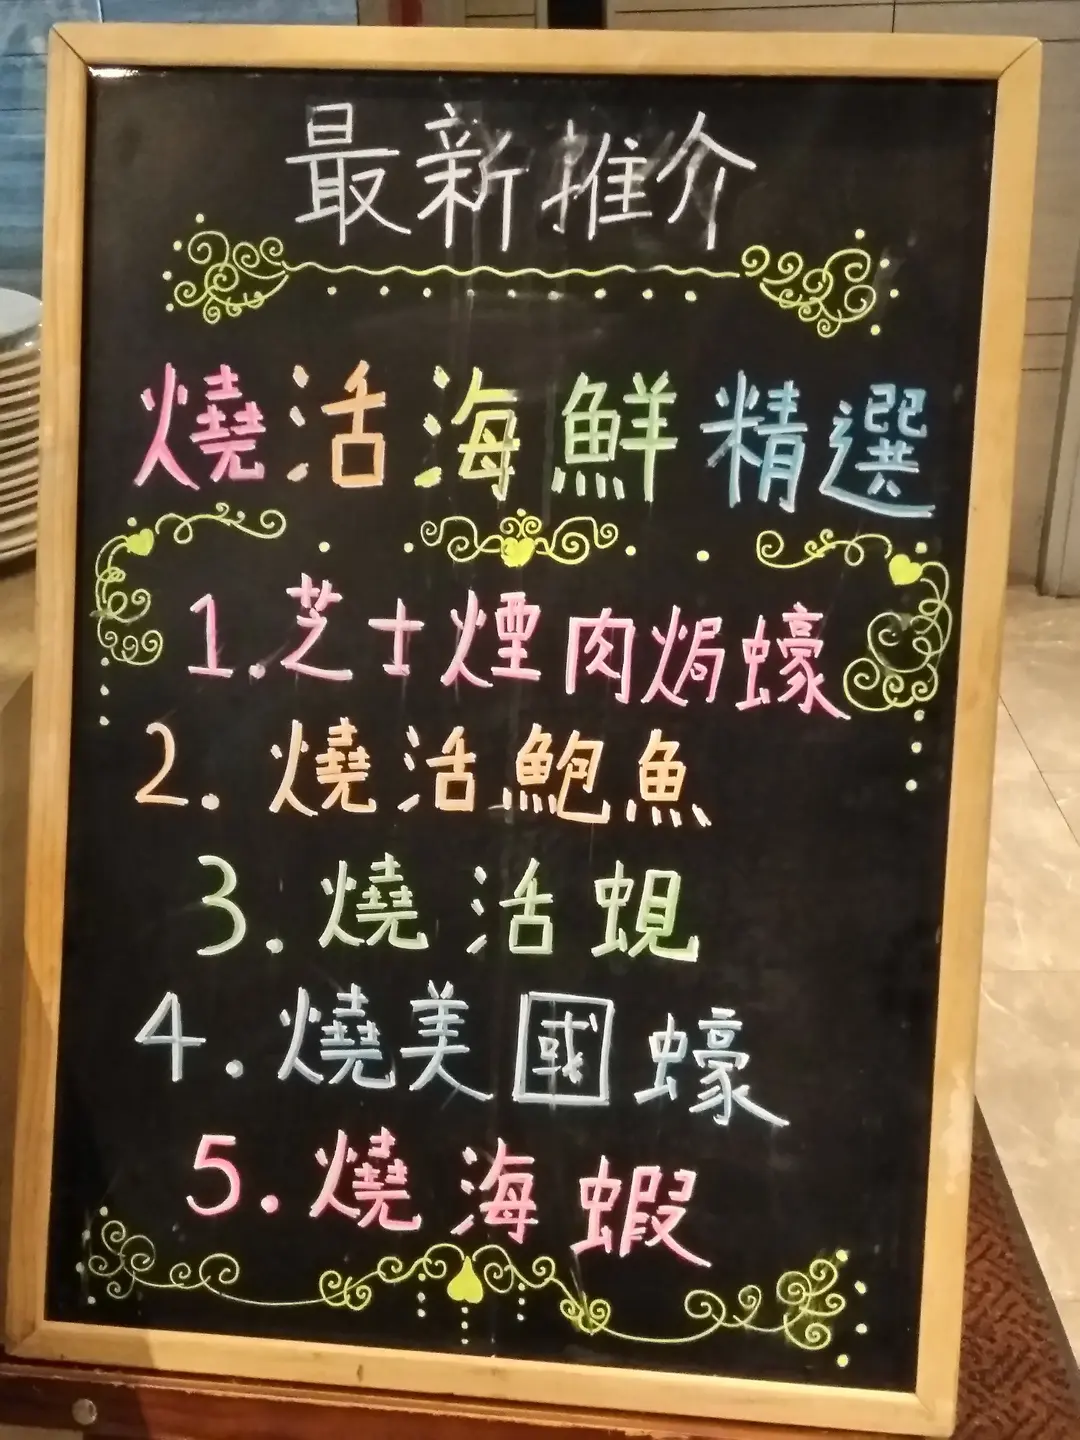 最新推介
燒活海鮮精選
1.芝士煙肉焗蠔
2.燒活鮑魚
3.燒活蜆
4.燒美國蠔
5.燒海蝦